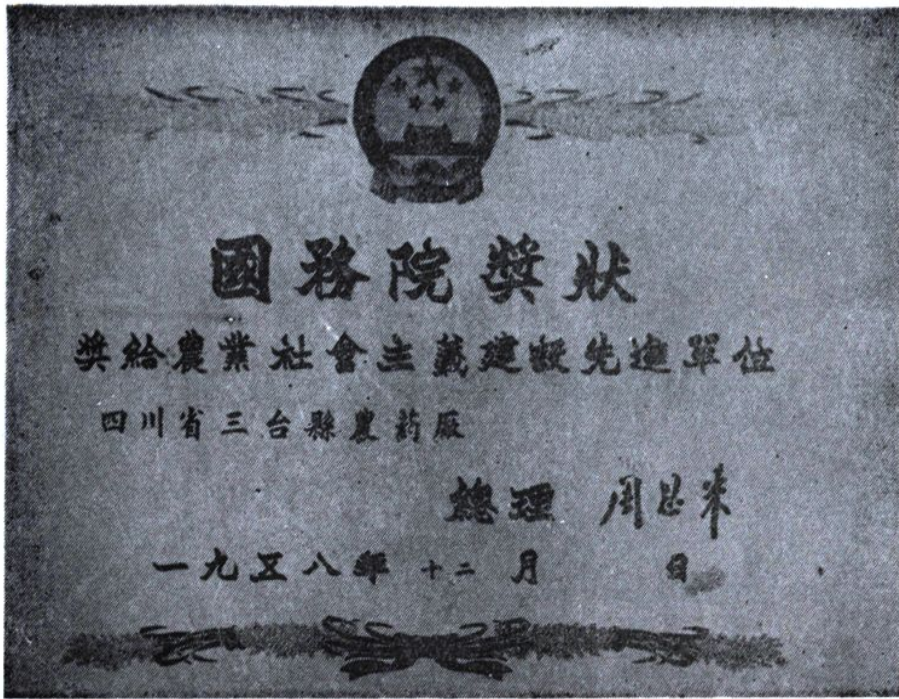 國務院獎狀
奬給農業社會主義建設先進單位
四川省三台縣農药厰
總理 周恩来
一九五八年 十二月 日